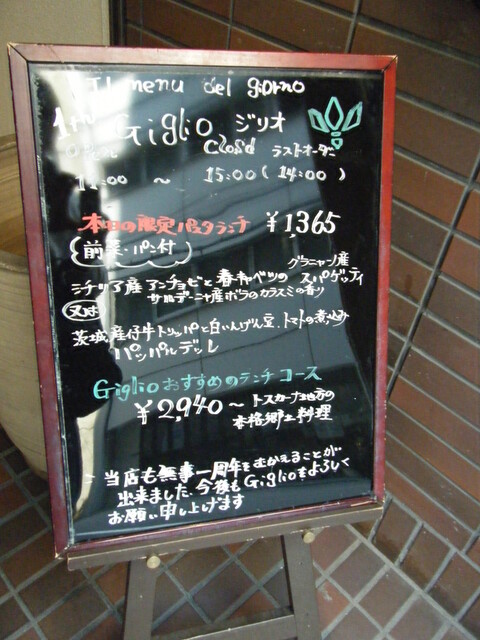 Il menu del giorno
Giglio ジリオ
オープン Closd ラストオーダー
11:00 ~ 15:00 (14:00)
本日の限定パスタランチ ¥1365
(前菜・パン付)
グラニャーノ産
シチリア産アンチョビと春キャベツのスパゲッティ
サルデーニャ産ボラのカラスミの香り
又は
茨城産仔牛トリッパと白いんげん豆、トマトの煮込み
パッパルデッレ
Giglioおすすめのランチコース
¥2,940~ トスカーナ地方の
本格郷土料理
当店も無事一周年をむかえることが
出来ました。今後もGiglioをよろしく
お願い申し上げます